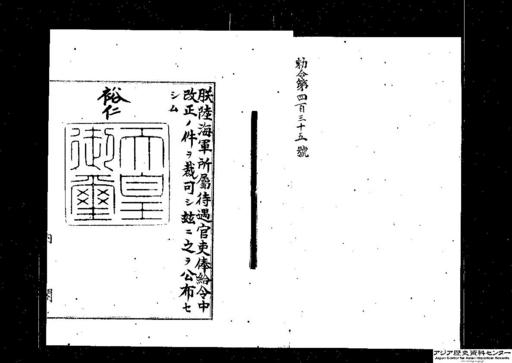 勅令第四百三十五號
朕陸海軍所屬待遇官吏俸給令中
改正ノ件ヲ裁可シ玆ニ之ヲ公布セ
シム
裕仁
天皇
御璽
内閣
アジア歴史資料センター
Japan Center for Asian Historical Records